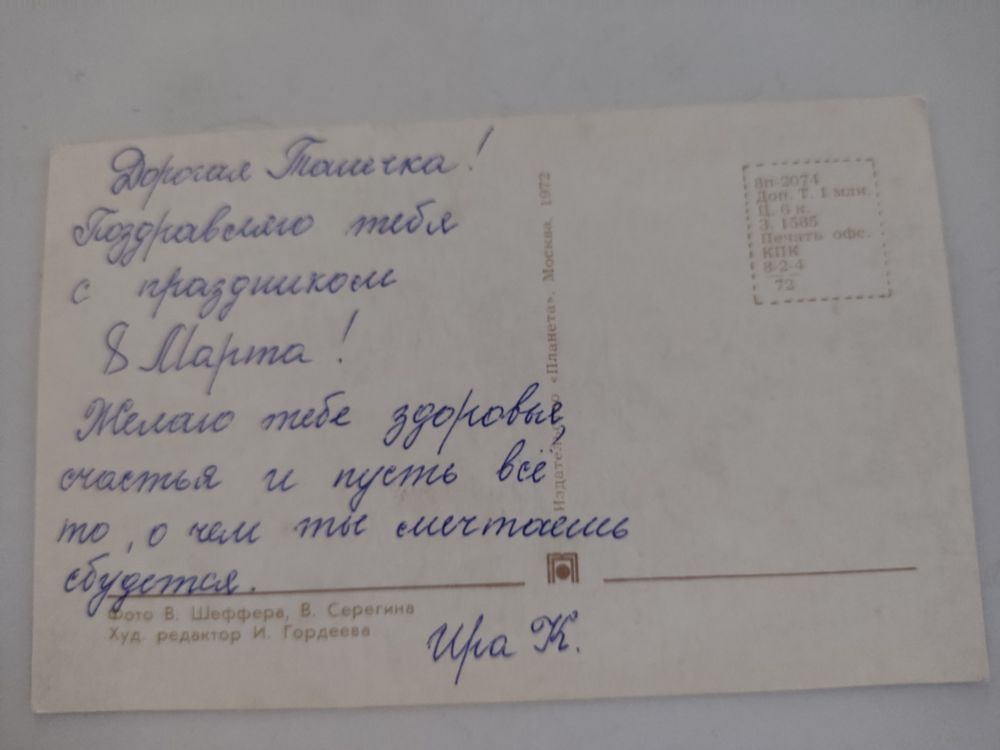 Дорогая Танечка!
Поздравляю тебя
с праздником
8 Марта!
Желаю тебе здоровья,
счастья и пусть всё
то, о чем ты мечтаешь
сбудется.
Ира К.
Фото В. Шеффера, В. Серегина
Худ. редактор И. Гордеева
Издательство «Планета». Москва. 1972
8п-2074
Доп. Т. 1 млн.
Ц. 6 к.
З. 1585
Печать офс.
КПК
8-2-4
72